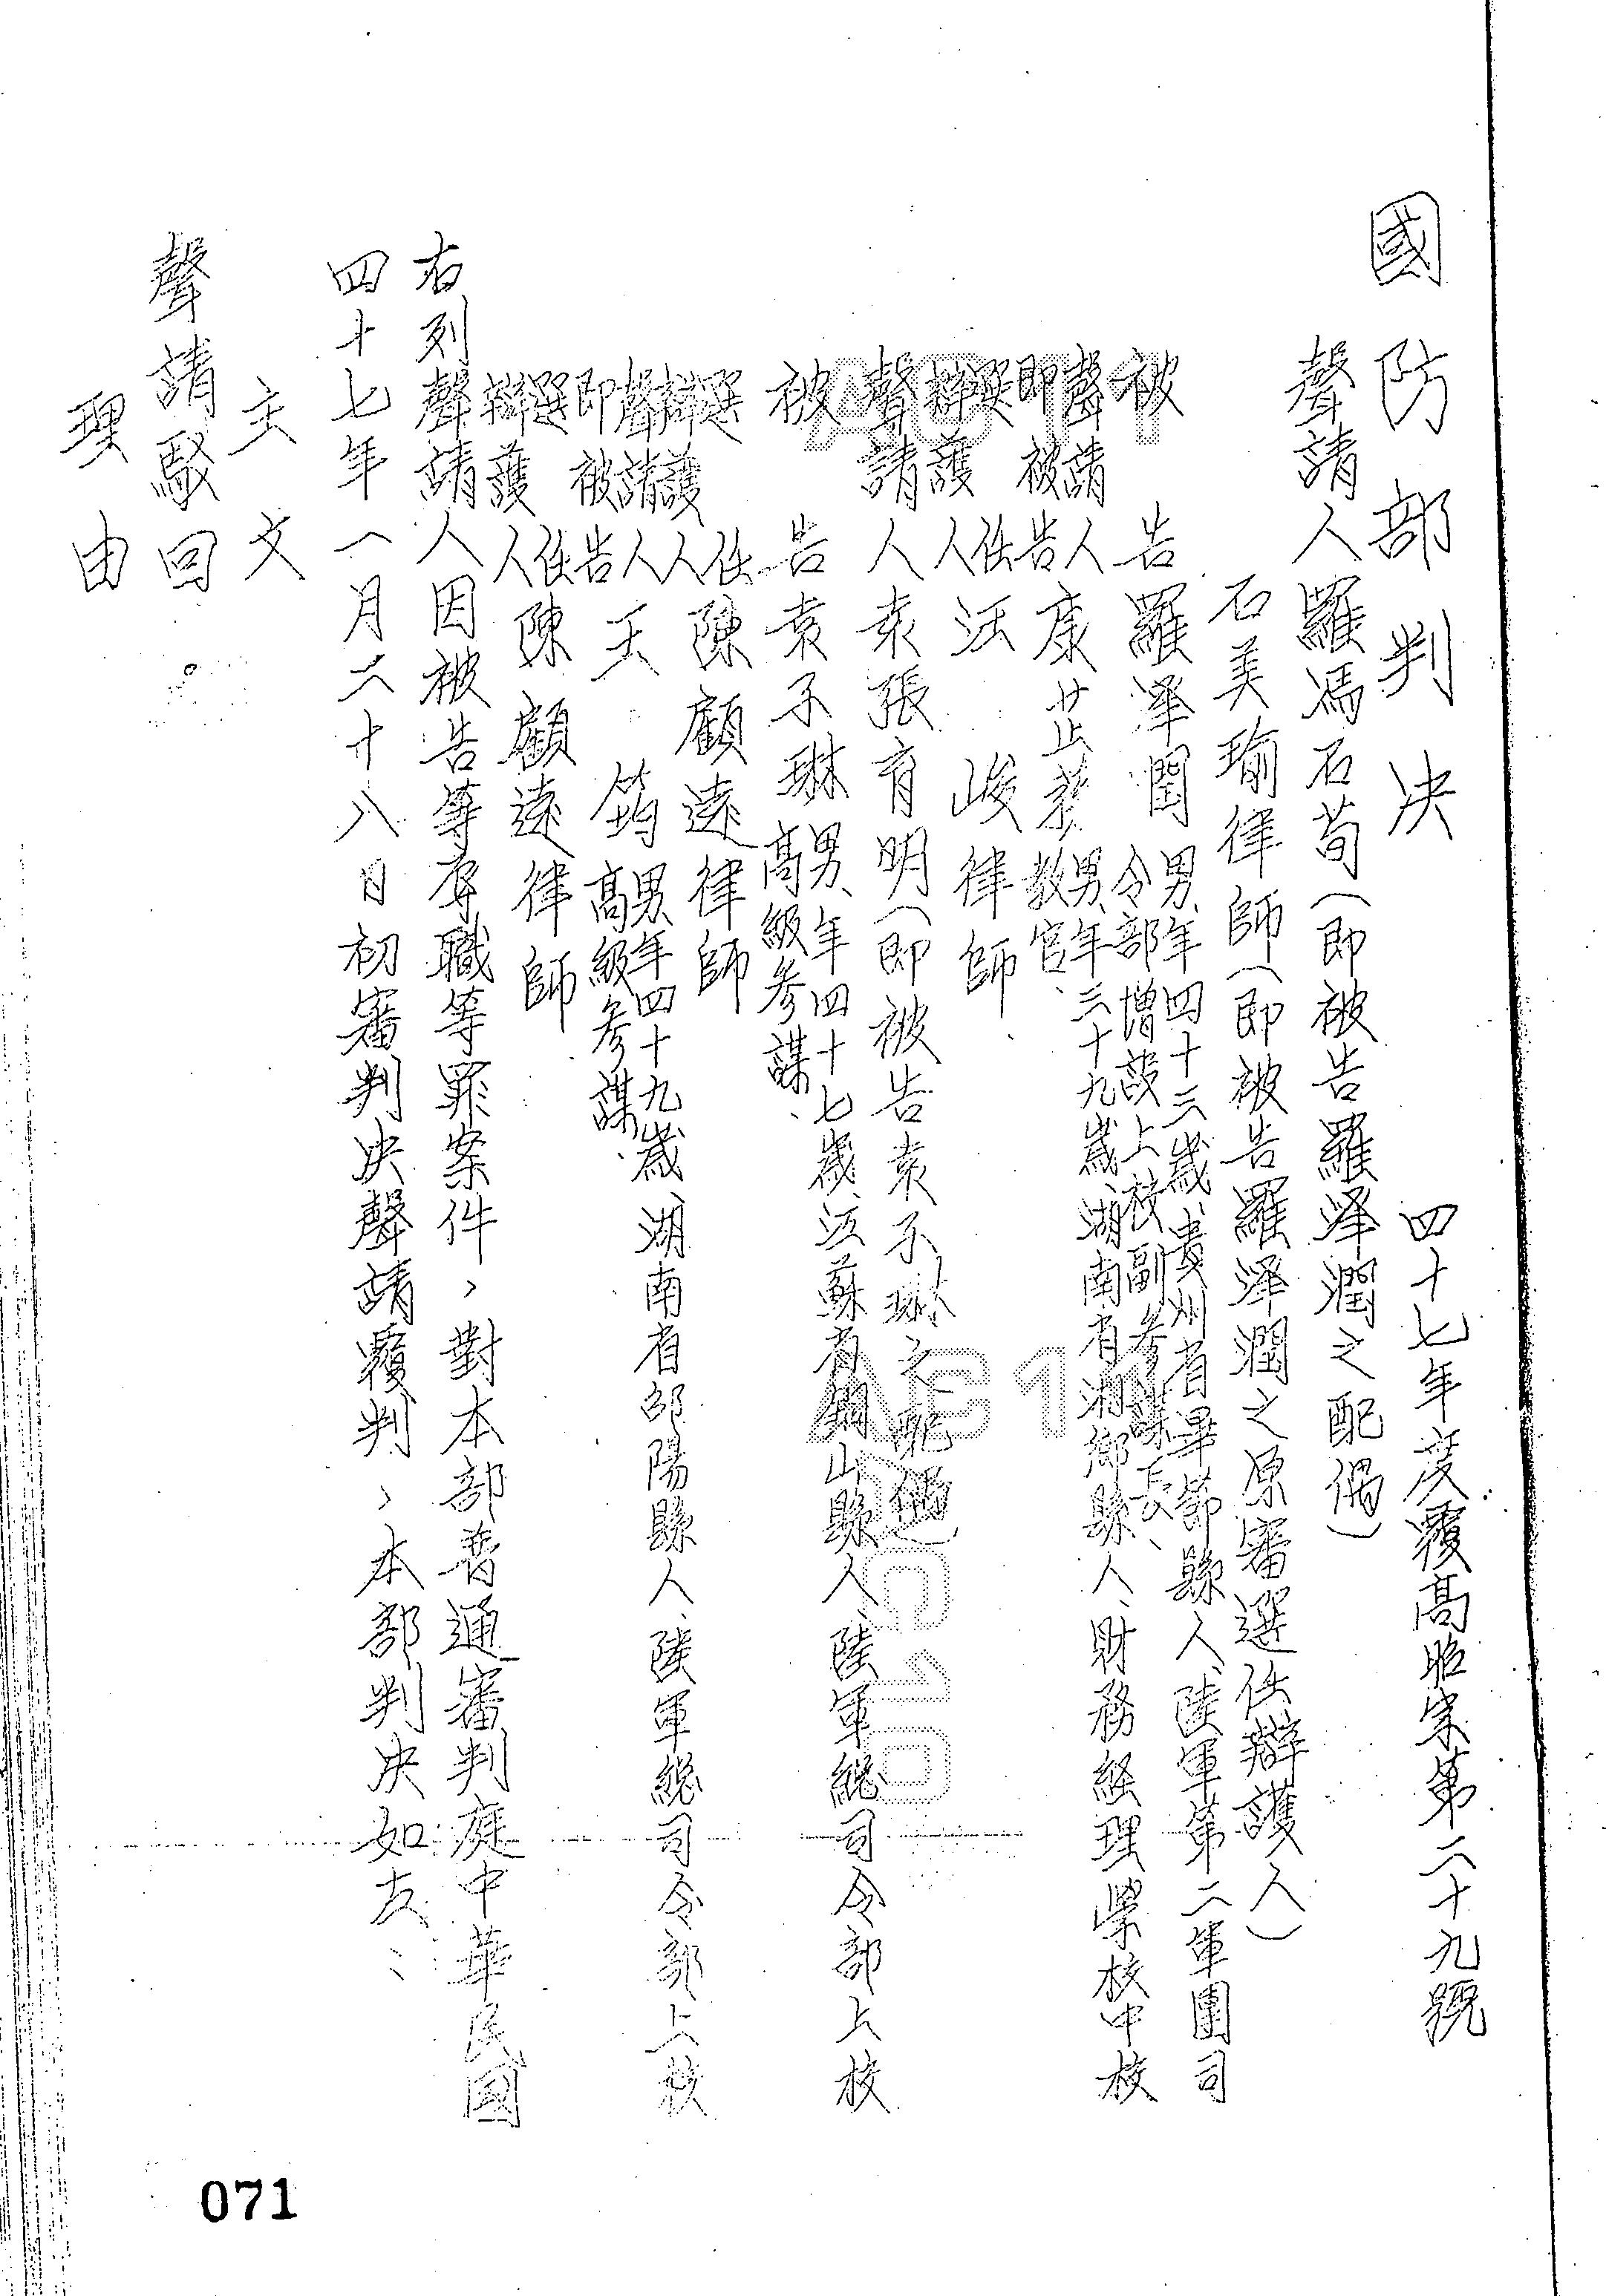 國防部判决
四十七年度覆高昭字第二十九號
聲請人羅馮石荀（即被告羅泽潤之配偶）
石美瑜律師（即被告羅泽潤之原審選任辯護人）
被告羅泽閏男、年四十三歲、貴州省畢節縣人、陸軍第二軍團司
令部增設上校副參謀長、
聲請人
即被告康芷
男、年三十九歲、湖南省湘鄉縣人、財務經理學校中校
教官、
選任
辯護人汪峻律師
聲請人袁張育明（即被告袁子琳之配偶）
被告袁子琳男、年四十七歲、江蘇省銅山縣人、陸軍總司令部上校
高級參謀、
選任
辯護人陳顧遠律師
聲請人
即被告王筠男、年四十九歲、湖南省邵陽縣人、陸軍總司令部上校
高級參謀、
選任
辯護人陳顧遠律師
右列聲請人因被告等辱職等罪案件、對本部普通審判庭中華民國
四十七年一月二十八日初審判决聲請覆判、本部判决如左：
主文
聲請駁回。
理由
071